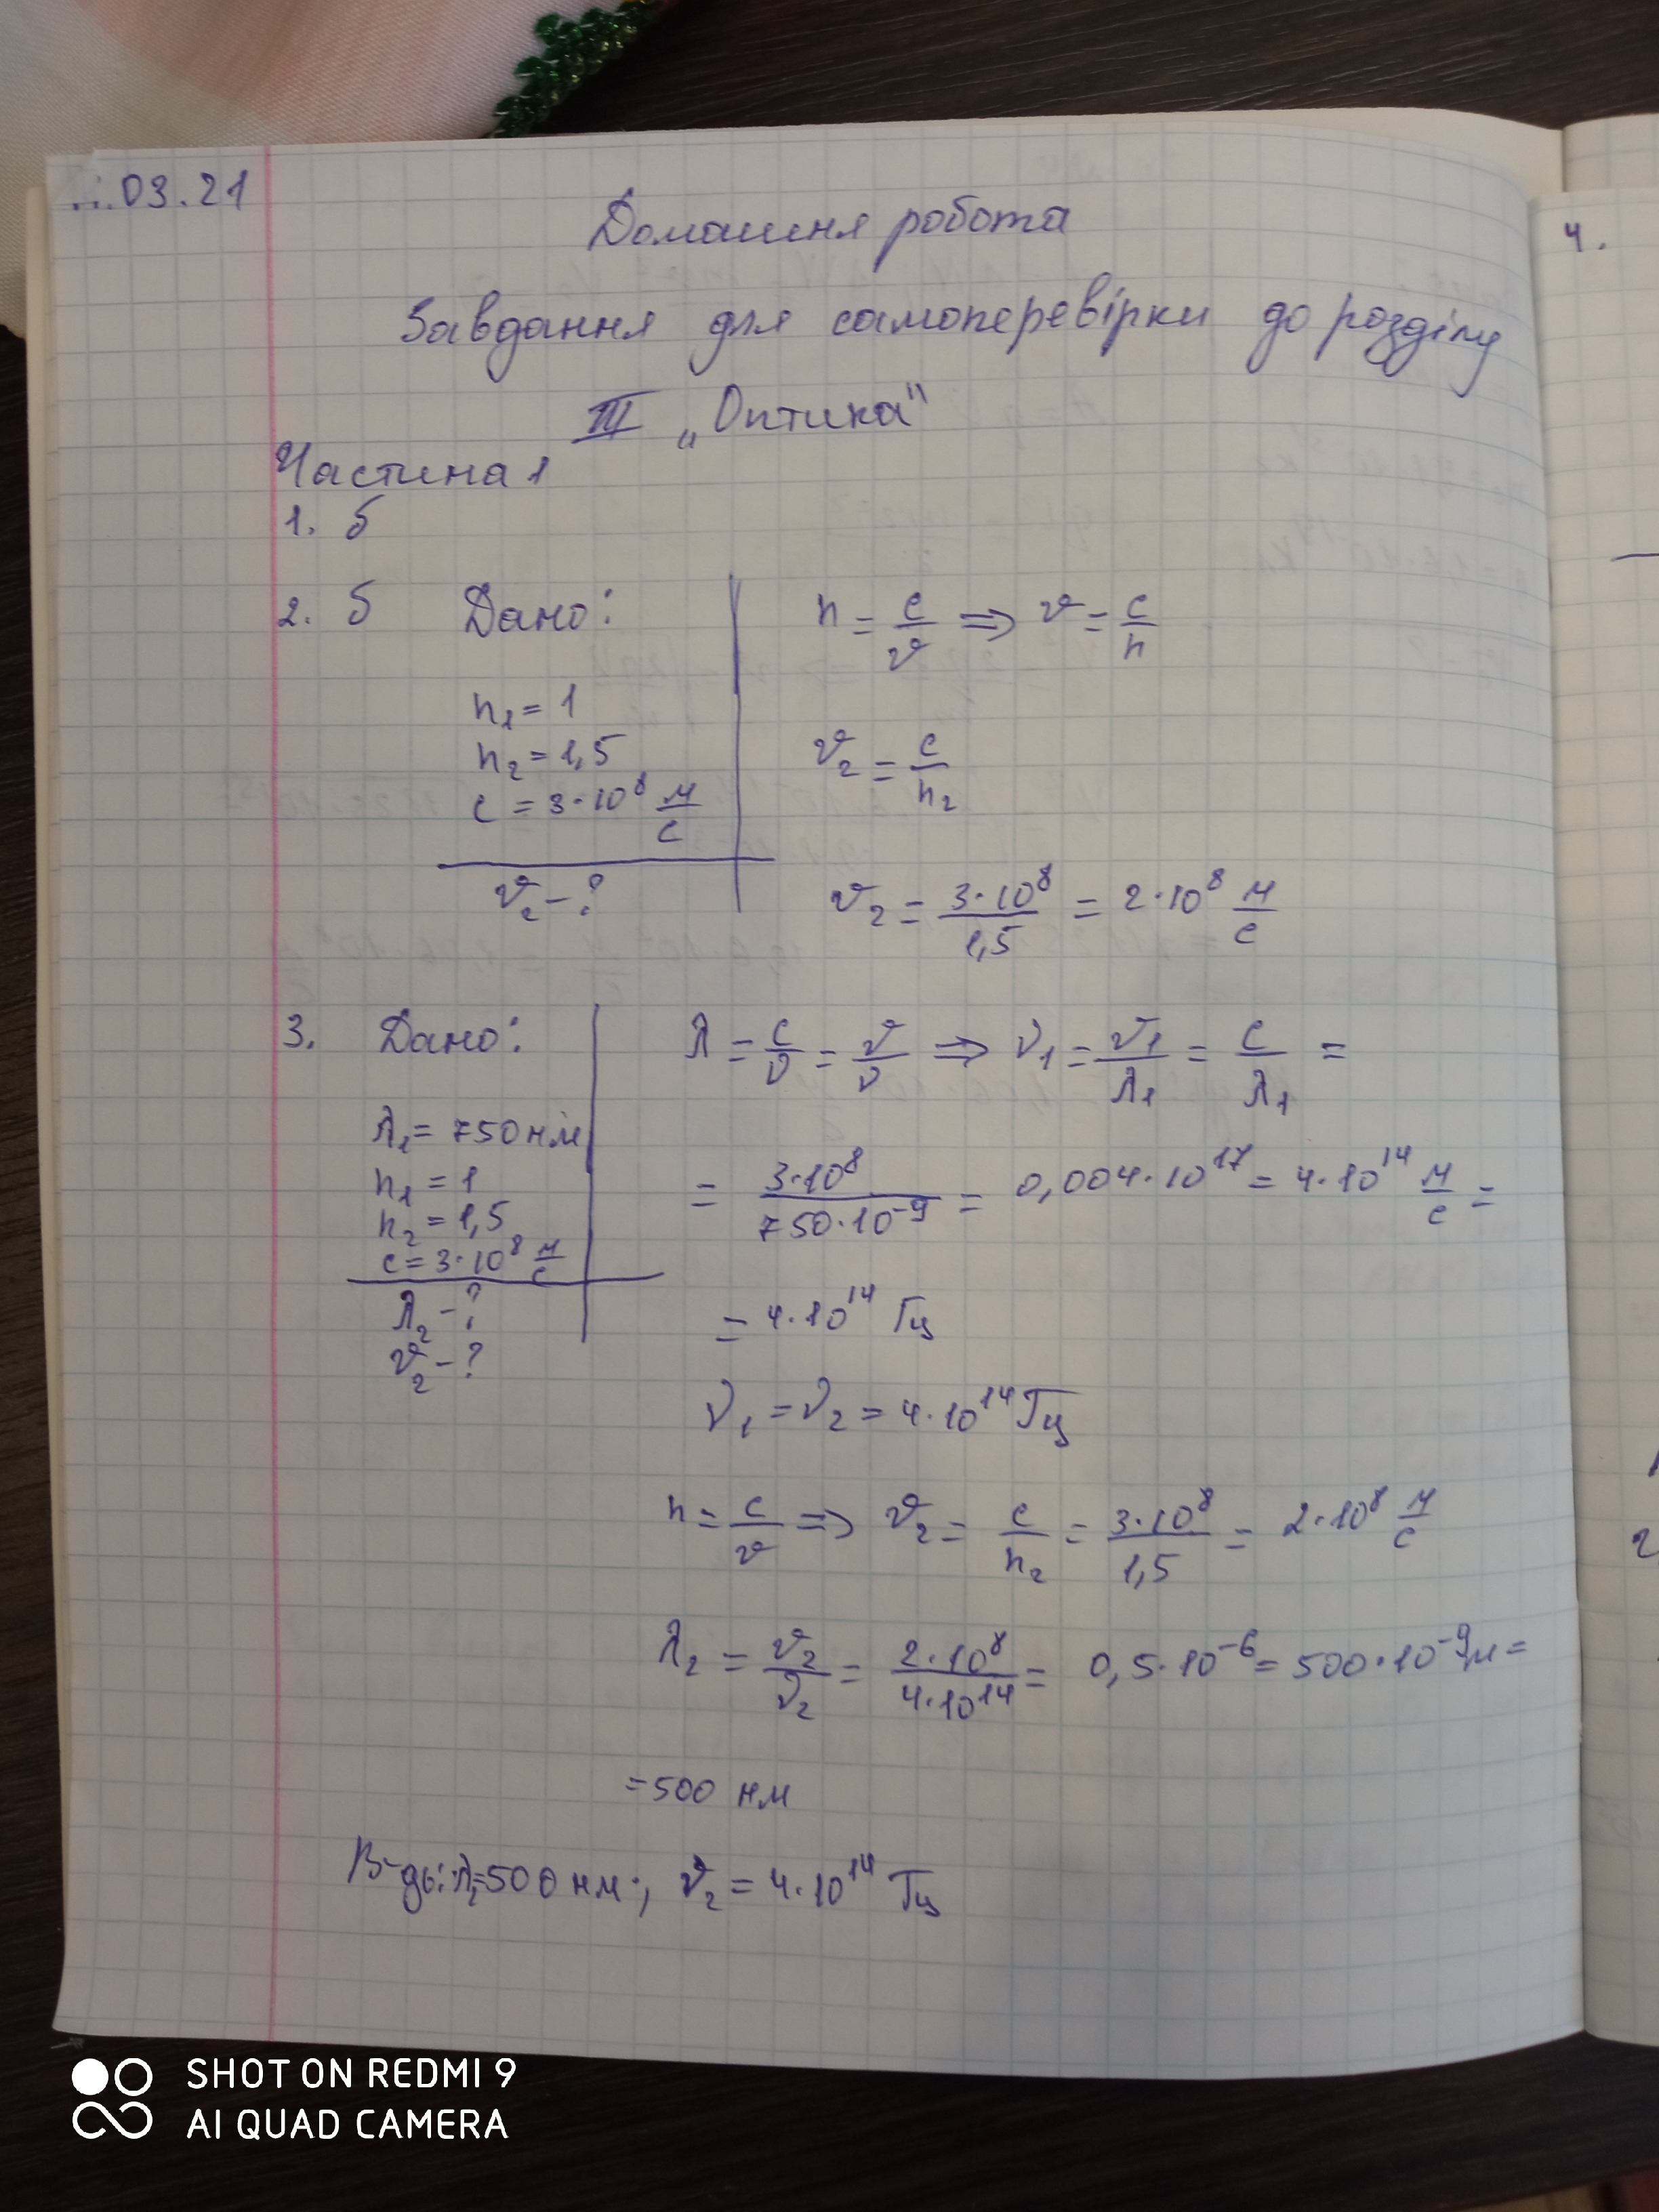 ..03.21
Домашня робота
Завдання для самоперевірки до розділу
III „Оптика"
Частина 1
1. б
2. б Дано:
n₁ = 1
n₂ = 1,5
c = 3·10⁸ м/с
v₂ - ?
n = c/v ⇒ v = c/n
v₂ = c/n₂
v₂ = 3·10⁸/1,5 = 2·10⁸ м/с
3. Дано:
λ₁ = 750 нм
n₁ = 1
n₂ = 1,5
c = 3·10⁸ м/с
λ₂ - ?
v₂ - ?
λ = c/ν = v/ν ⇒ ν₁ = v₁/λ₁ = c/λ₁ =
= 3·10⁸/750·10⁻⁹ = 0,004·10¹⁷ = 4·10¹⁴ м/с =
= 4·10¹⁴ Гц
ν₁ = ν₂ = 4·10¹⁴ Гц
n = c/v ⇒ v₂ = c/n₂ = 3·10⁸/1,5 = 2·10⁸ м/с
λ₂ = v₂/ν₂ = 2·10⁸/4·10¹⁴ = 0,5·10⁻⁶ = 500·10⁻⁹ м =
= 500 нм
В-дь: λ₂=500 нм; ν₂ = 4·10¹⁴ Гц
4.
SHOT ON REDMI 9
AI QUAD CAMERA